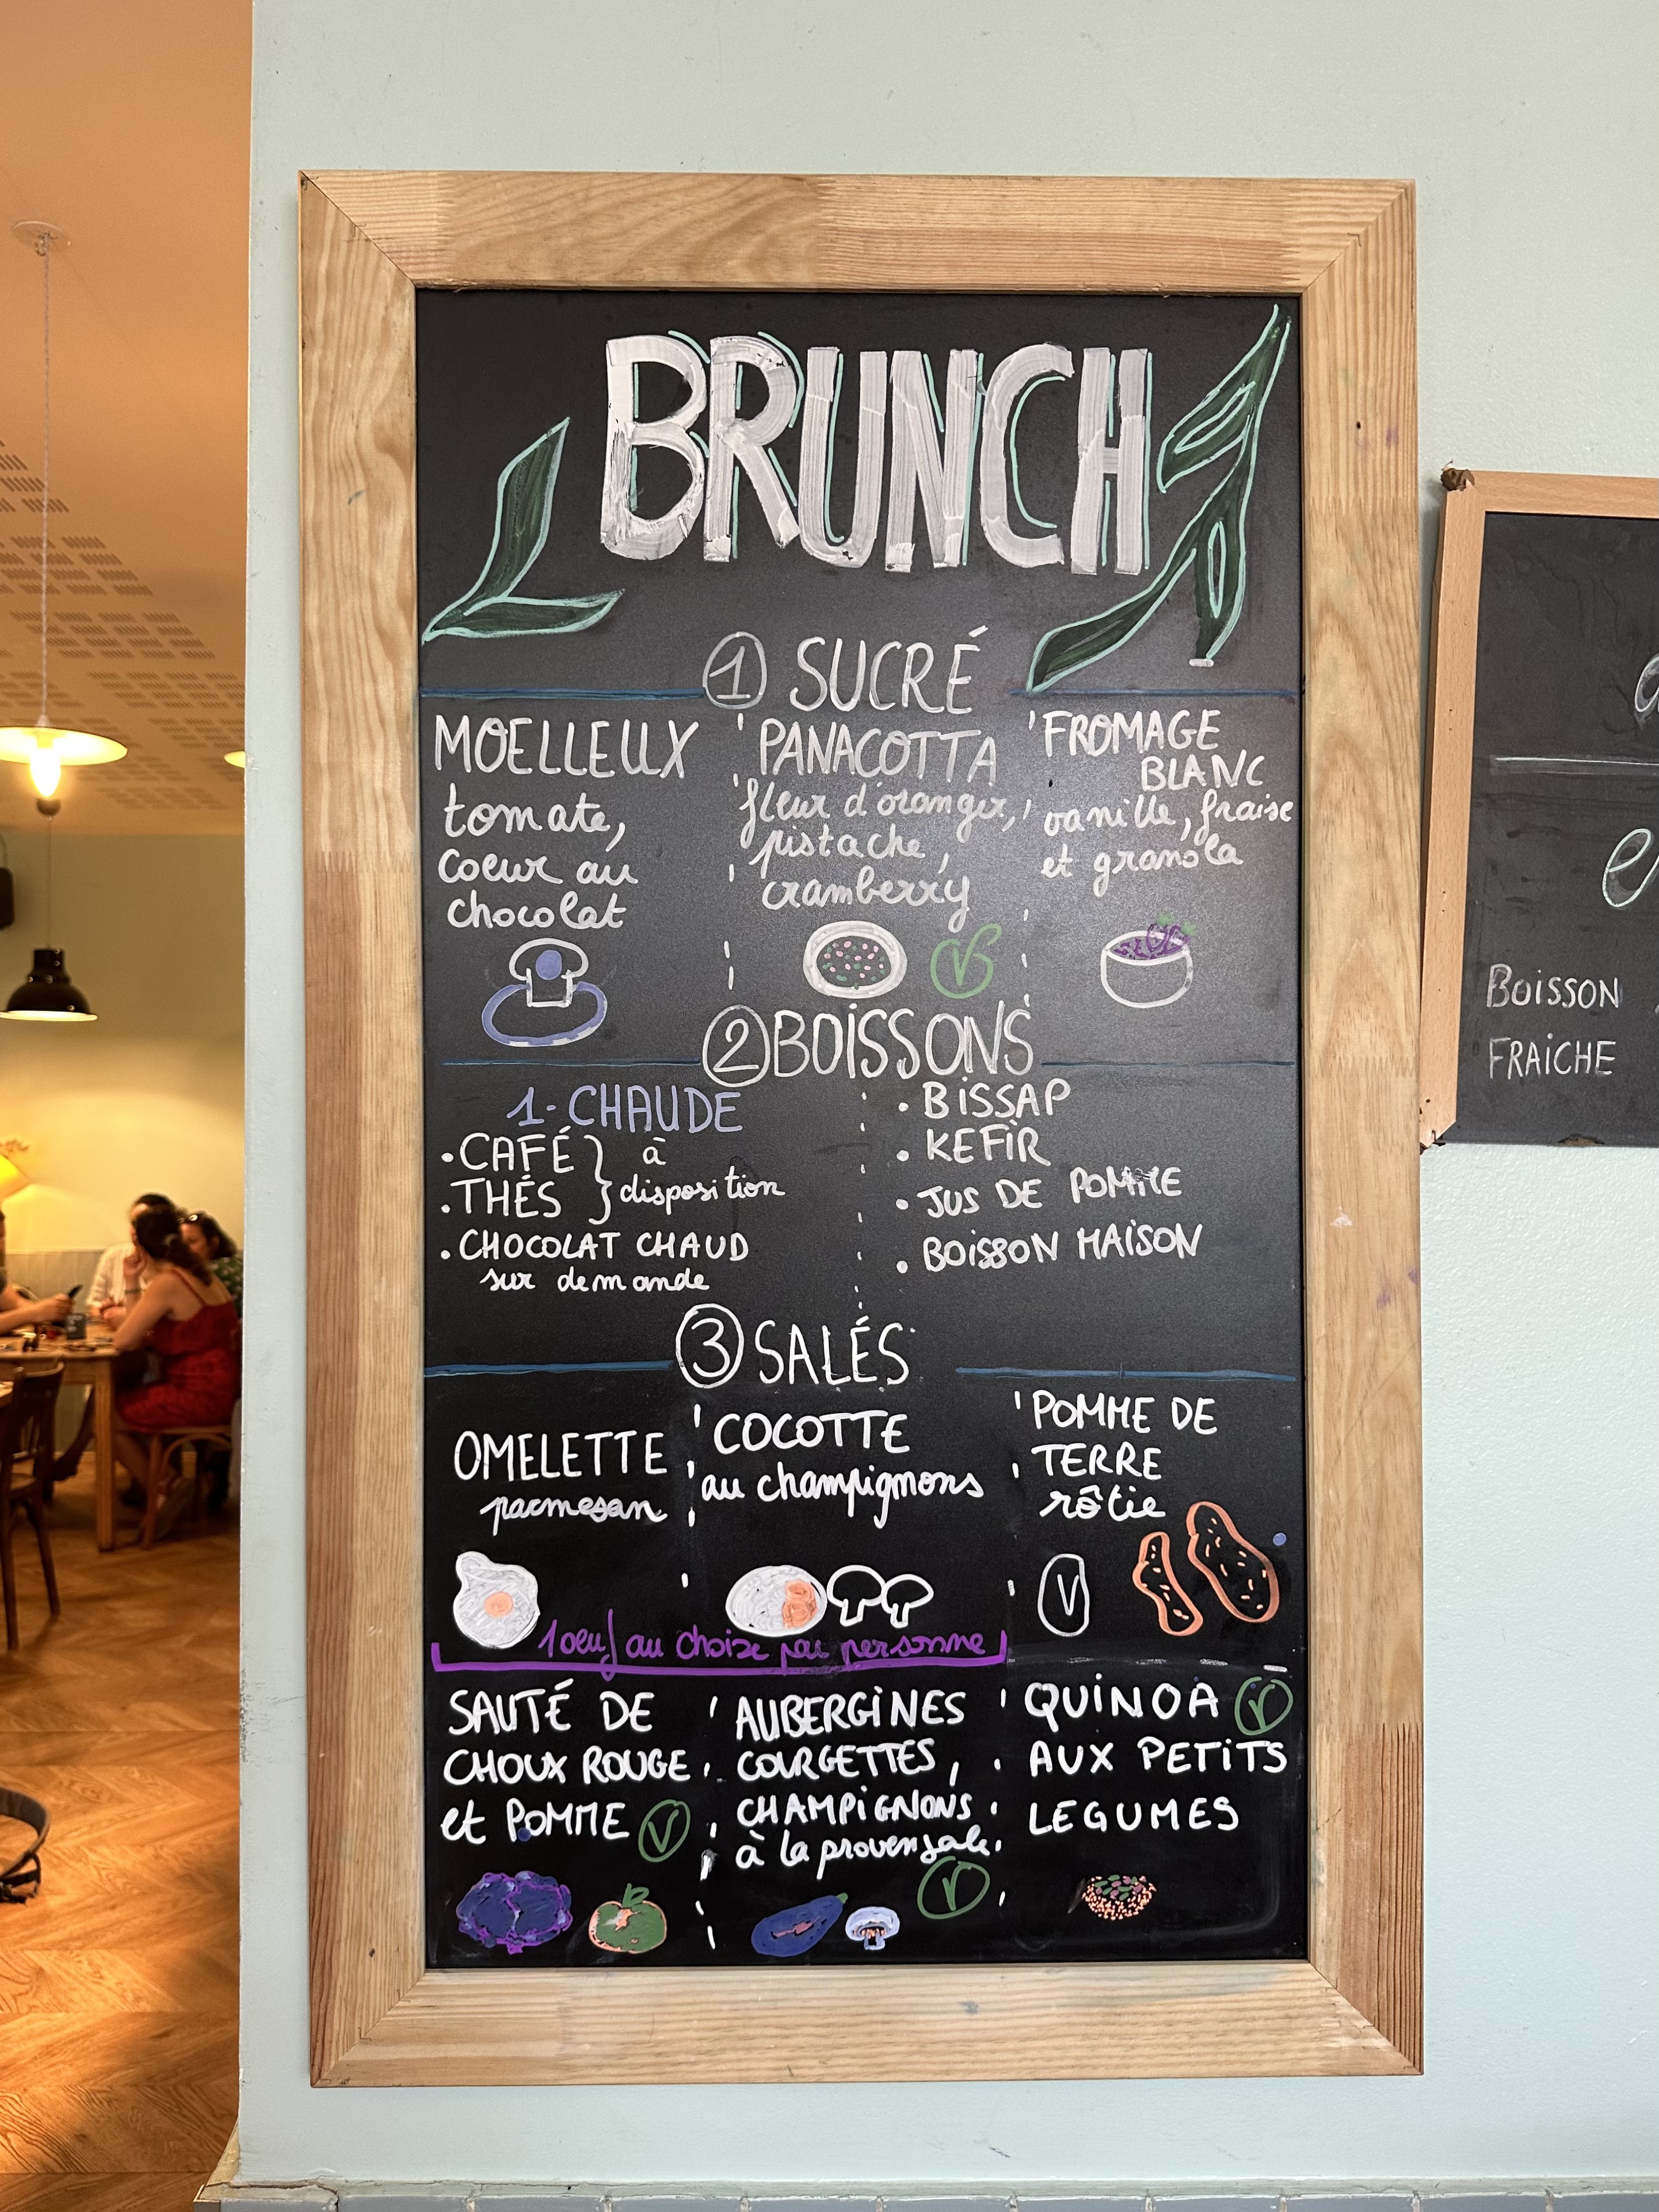 BRUNCH
1 SUCRÉ
MOELLEUX
tomate,
coeur au
chocolat
PANACOTTA
fleur d'oranger,
pistache,
cramberry
V
FROMAGE
BLANC
vanille, fraise
et granola
2 BOISSONS
1-CHAUDE
• CAFÉ } à
• THÉS } disposition
• CHOCOLAT CHAUD
sur demande
• BISSAP
• KEFIR
• JUS DE POMME
• BOISSON MAISON
3 SALÉS
OMELETTE
parmesan
COCOTTE
au champignons
1 oeuf au choix par personne
POMME DE
TERRE
rôtie
V
SAUTÉ DE
CHOUX ROUGE
et POMME V
AUBERGINES
COURGETTES,
CHAMPIGNONS
à la provensale
V
QUINOA V
AUX PETITS
LEGUMES
BOISSON
FRAICHE